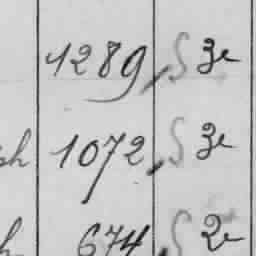 1289, S 3e
ph 1072, S 3e
h 674, S 2e